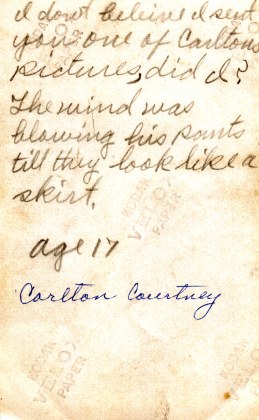 I don't beleive I sent
you one of Carltons
pictures, did I?
The wind was
blowing his pants
till they look like a
skirt.
age 17
Carlton Courtney
KODAK
VELOX
PAPER
KODAK
VELOX
PAPER